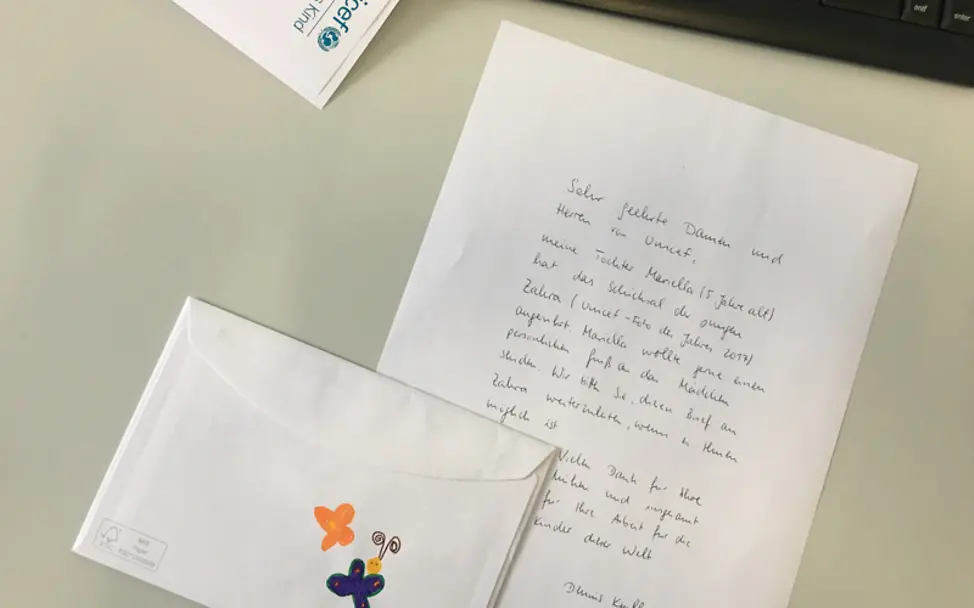 unicef
s Kind
end
enter
Sehr geehrte Damen und
Herren von Unicef,
meine Tochter Mariella (5 Jahre alt)
hat das Schicksal der jungen
Zahra (Unicef-Foto des Jahres 2017)
angerührt. Mariella wollte gerne einen
persönlichen Gruß an das Mädchen
senden. Wir bitten Sie, diesen Brief an
Zahra weiterzuleiten, wenn es Ihnen
möglich ist
Vielen Dank für Ihre
Mühen und insgesamt
für Ihre Arbeit für die
Kinder dieser Welt
Dennis
MIX
Papier